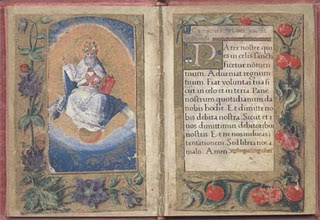 PAter noster qui
es in celis sancti
ficetur nomen
tuum. Adueniat regnum
tuum. Fiat voluntas tua si
cut in celo et in terra. Pane
nostrum quotidianum da
nobis hodie. Et dimitte no
bis debita nostra. Sicut et n
os dimittimus debitoribus
nostris. Et ne nos inducas i
tentationem. Sed libera nos a
malo. Amen